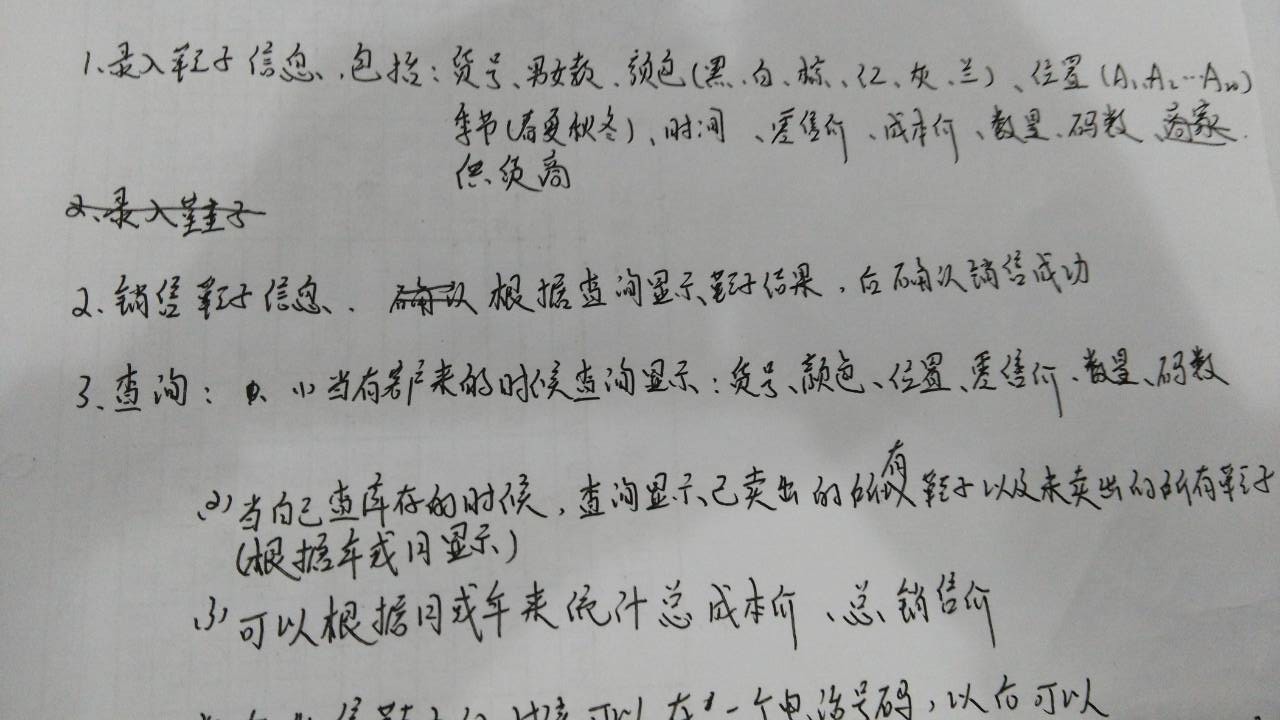 1.录入鞋子信息、包括:货号、男女款、颜色(黑、白、棕、红、灰、兰)、位置(A1、A2…A20)
季节(春夏秋冬)、时间、零售价、成本价、数量、码数、商家
供货商
2、录入鞋子
2、销售鞋子信息、确认根据查询显示鞋子结果,后确认销售成功
3、查询:(1)当有客户来的时候查询显示:货号、颜色、位置、零售价、数量、码数
(2)当自己查库存的时候,查询显示已卖出的所有鞋子以及未卖出的所有鞋子
(根据年或月显示)
(3)可以根据月或年来统计总成本价、总销售价
可以存一个电话号码,以后可以